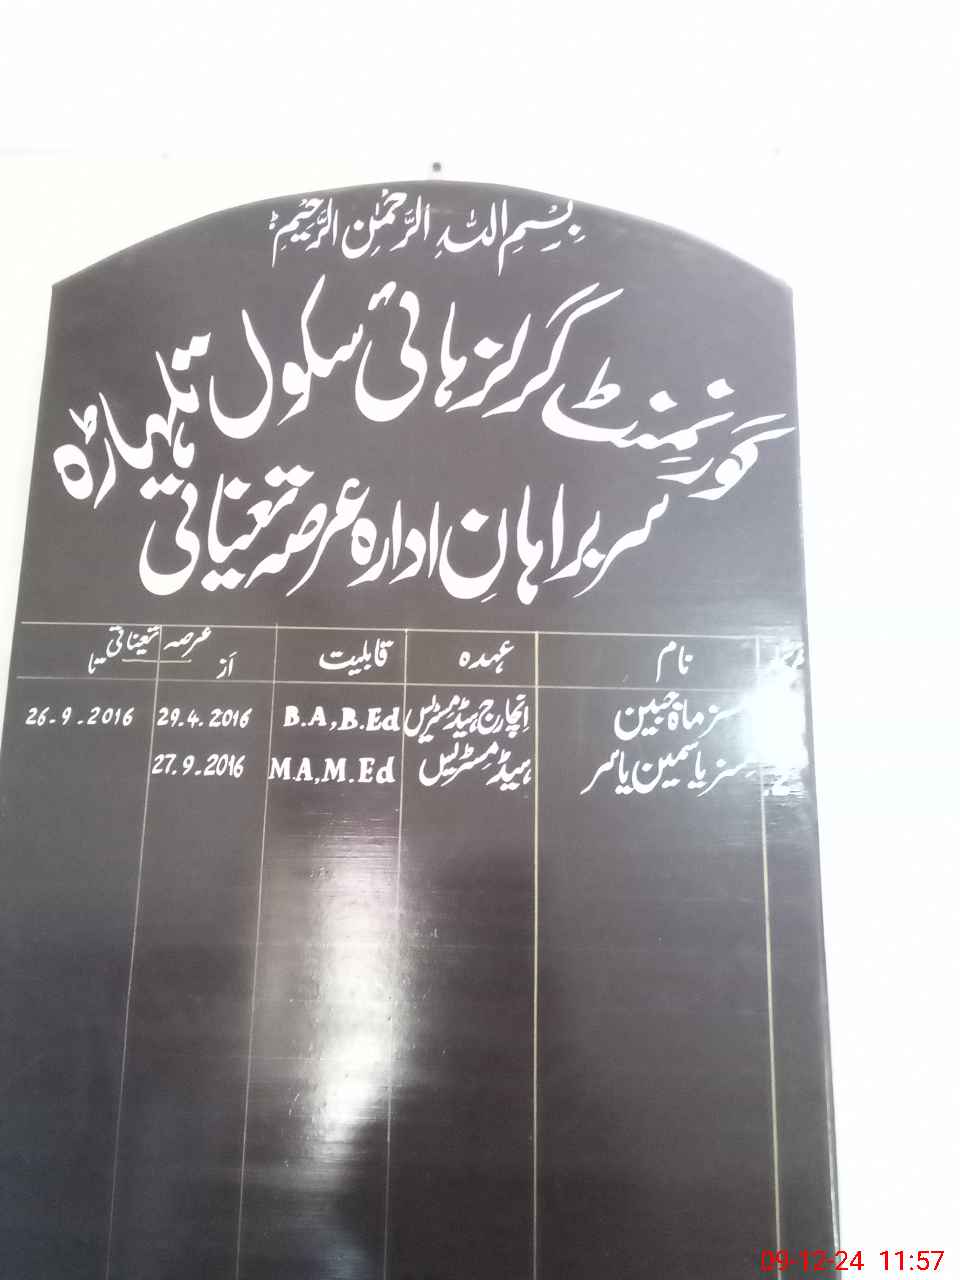 بِسْمِ اللهِ الرَّحْمٰنِ الرَّحِيْمِ
گورنمنٹ گرلز ہائی سکول تلہاڑہ
سربراہانِ ادارہ عرصہ تعیناتی
نام عہدہ قابلیت عرصہ تعیناتی
از تا
مسز ماہ جبین انچارج ہیڈمسٹریس B.A,B.Ed 29.4.2016 26.9.2016
مسز یاسمین یاسر ہیڈمسٹریس M.A,M.Ed 27.9.2016
09-12-24 11:57